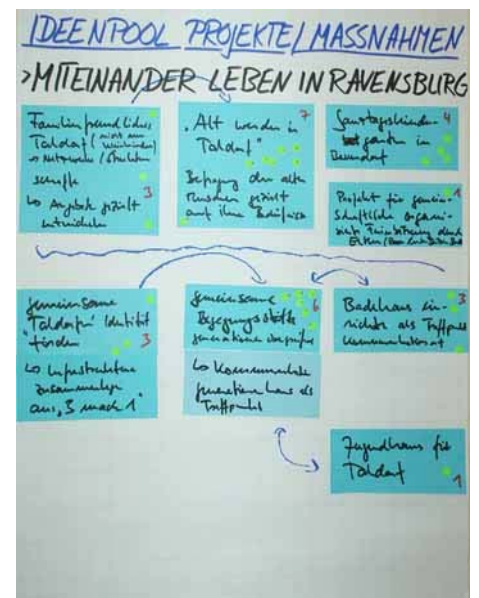 IDEENPOOL PROJEKTE/MASSNAHMEN
>MITEINANDER LEBEN IN RAVENSBURG
Familienfreundliches
Taldorf (nicht nur
→ Netzwerke /
schaffen
↳ Angebote gezielt
entwickeln
3
7
"Alt werden in
Taldorf"
Befragung der alten
Menschen gezielt
auf ihre Bedürfnisse
4
Samstagskinder-
garten in
Bavendorf
1
Projekt für gemein-
schaftliche organi-
sierte
Eltern
gemeinsame
"Taldorfer" Identität
finden
3
↳ Infrastruktur
zusammenlegen
aus "3 mach 1"
gemeinsame
6
Begegnungsstätte
generationenübergreifend
↳ Kommunales
generationenhaus als
Treffpunkt
3
Backhaus ein-
richten als Treffpunkt
Jugendhaus für
Taldorf
1